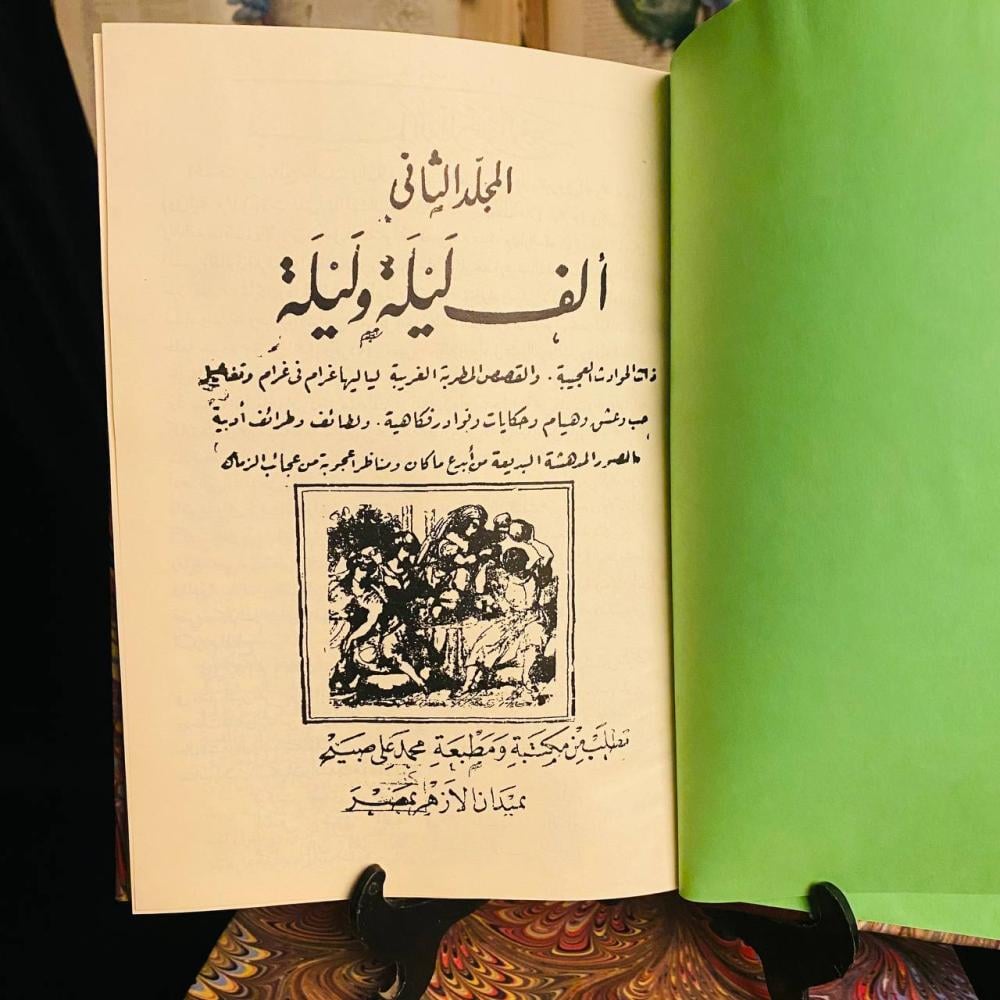 المجلّد الثاني
ألف لَيْلَة وَلَيْلَة
ذات الحوادث العجيبة . والقصص المطربة الغريبة لياليها غرام فى غرام وتفاصيل
حب وعشق وهيام وحكايات ونوادر فكاهية . ولطائف وطرائف أدبية
بالصور المدهشة البديعة من أبدع ما كان ومناظر أعجوبة من عجائب الزمان
تطلب من مكتبة ومطبعة محمد على صبيح
بميدان الأزهر بمصر